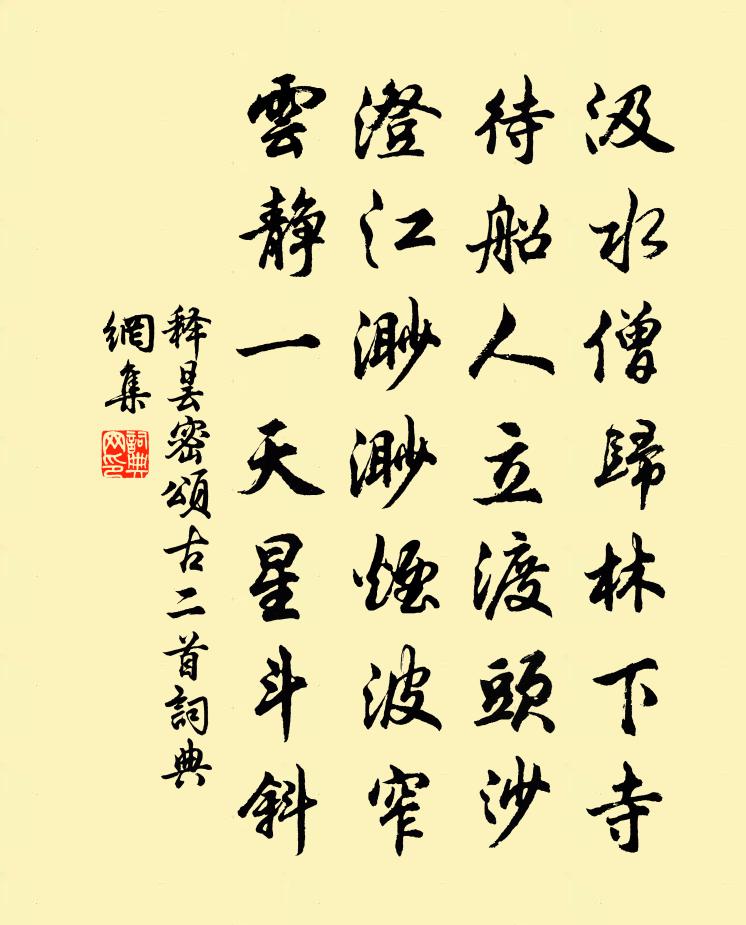 汲水僧歸林下寺
待船人立渡頭沙
澄江渺渺煙波窄
雲靜一天星斗斜
释昙密頌古二首詞典
網集
詞典網印